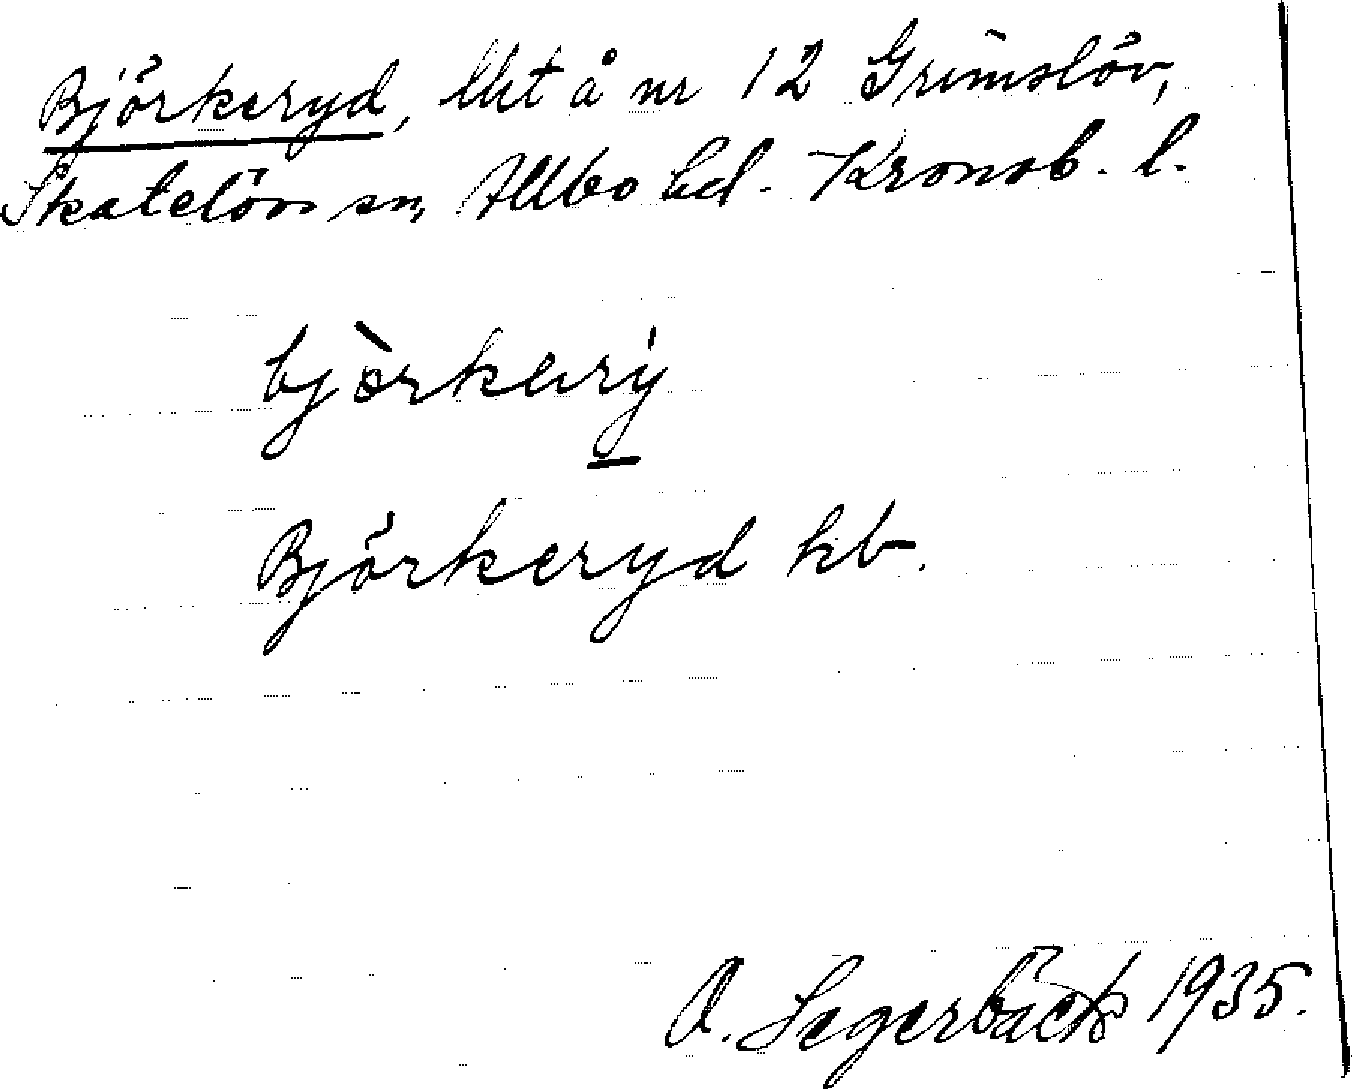 Björkeryd, lht å nr 12 Grimslöv,
Skatelövs sn, Allbo hd. Kronob. l.
bjòrkery
Björkeryd kb.
O. Segerbäck 1935.